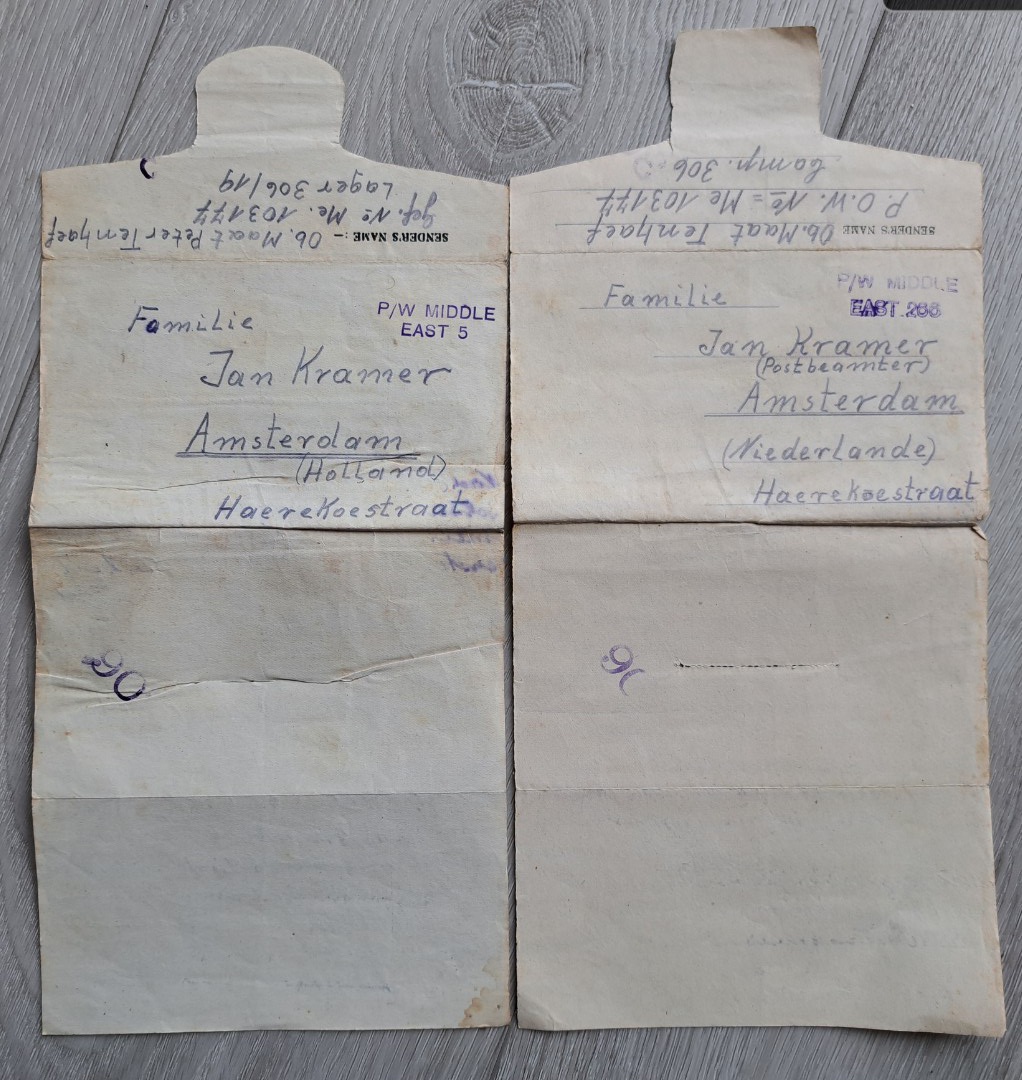 SENDER'S NAME :— Ob. Maat Peter Tenhaef
Gef. No Me. 103177
Lager 306/19
P/W MIDDLE
EAST 5
Familie
Jan Kramer
Amsterdam
(Holland)
Haerekoestraat
90
SENDER'S NAME Ob. Maat Tenhaef
P.O.W. No = Me 103177
Camp. 306
P/W MIDDLE
EAST
Familie
Jan Kramer
(Postbeamter)
Amsterdam
(Niederlande)
Haerekoestraat